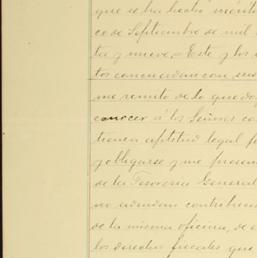 que se ha hecho mérito
co de Septiembre de mil
ta y nueve.= Este y los
tos concuerdan con sus
me remito de lo que doy
conocer á los Señores co
tienen aptitud legal
y obligarse y me presen
de la Tesoreria General
no adeudan contribucio
de la misma oficina, de
los derechos fiscales que